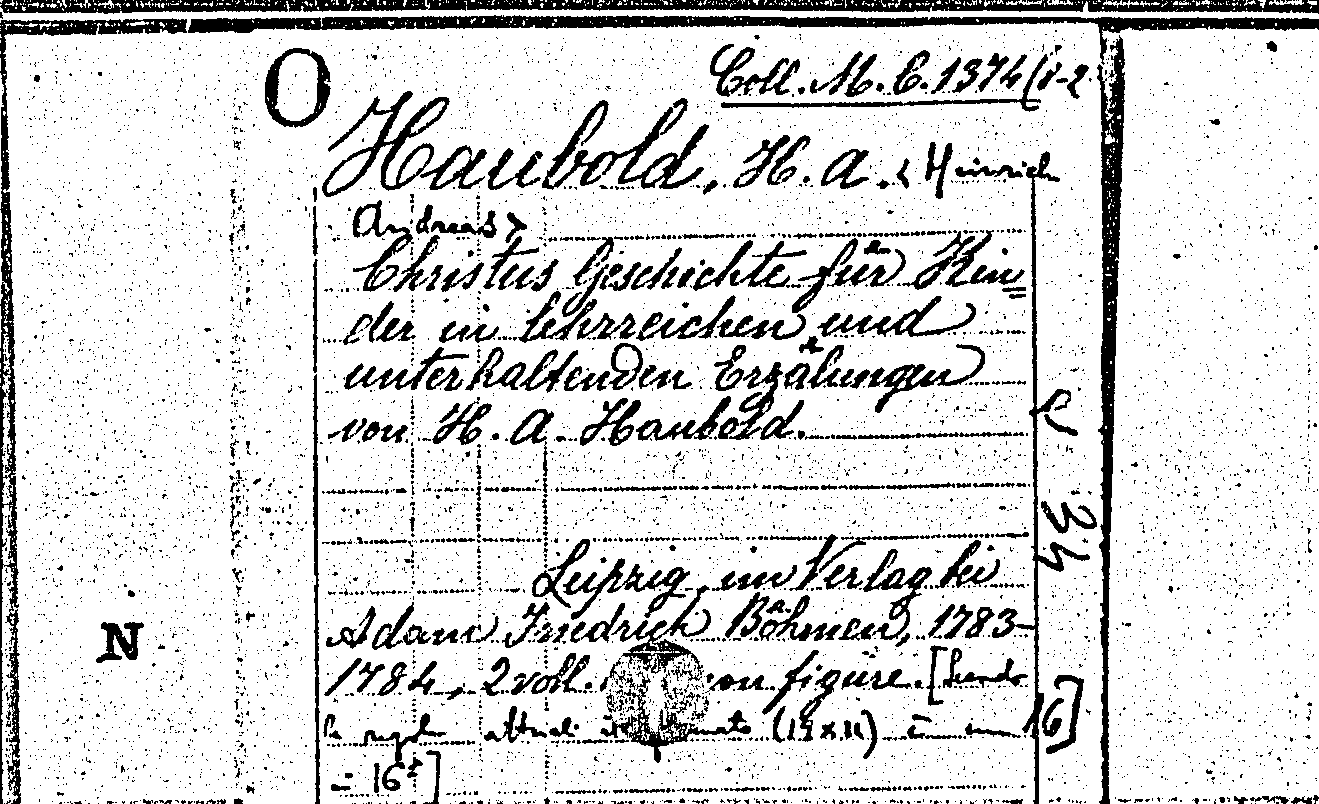 O
Coll. M. C. 1374 (1-2
Haubold, H. A. < Heinrich
Andreas >
Christus Geschichte für Kin=
der in lehrreichen und
unterhaltenden Erzälungen
von H. A. Haubold.
e 34
Leipzig, im Verlag bei
Adam Friedrich Böhmen, 1783-
N
1784, 2 voll. con figure. [
attuali (19x11) è un 16]
= 16°]